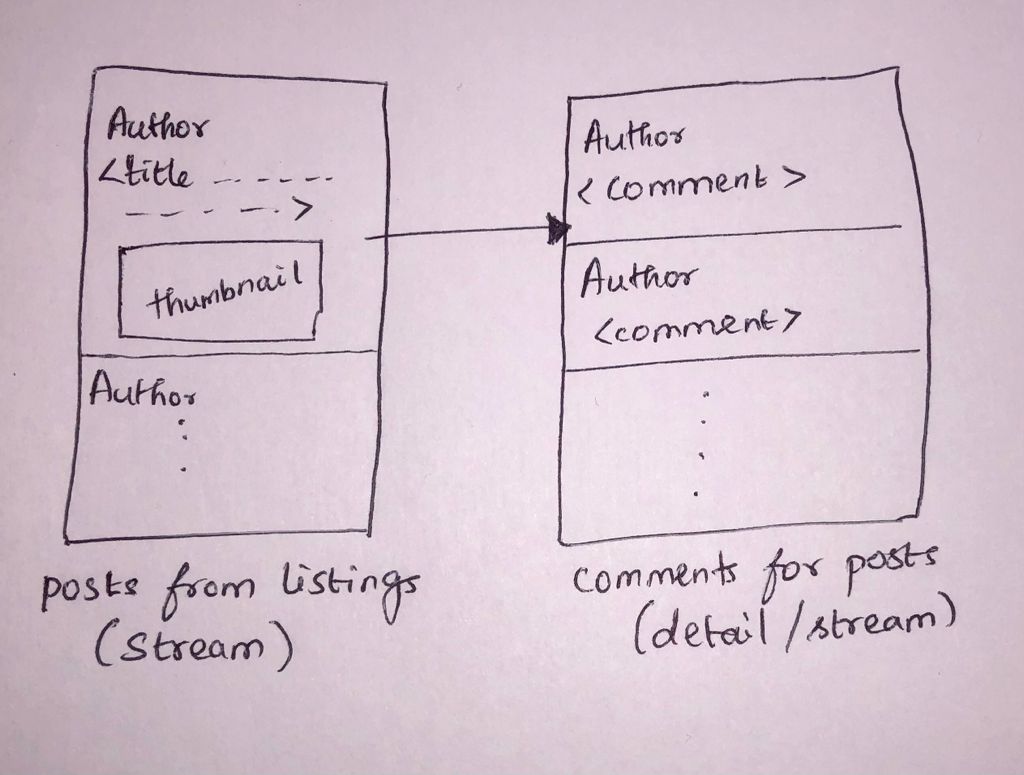 Author
<title
>
thumbnail
Author
posts from listings
(stream)
Author
< comment >
Author
<comment>
comments for posts
(detail/stream)